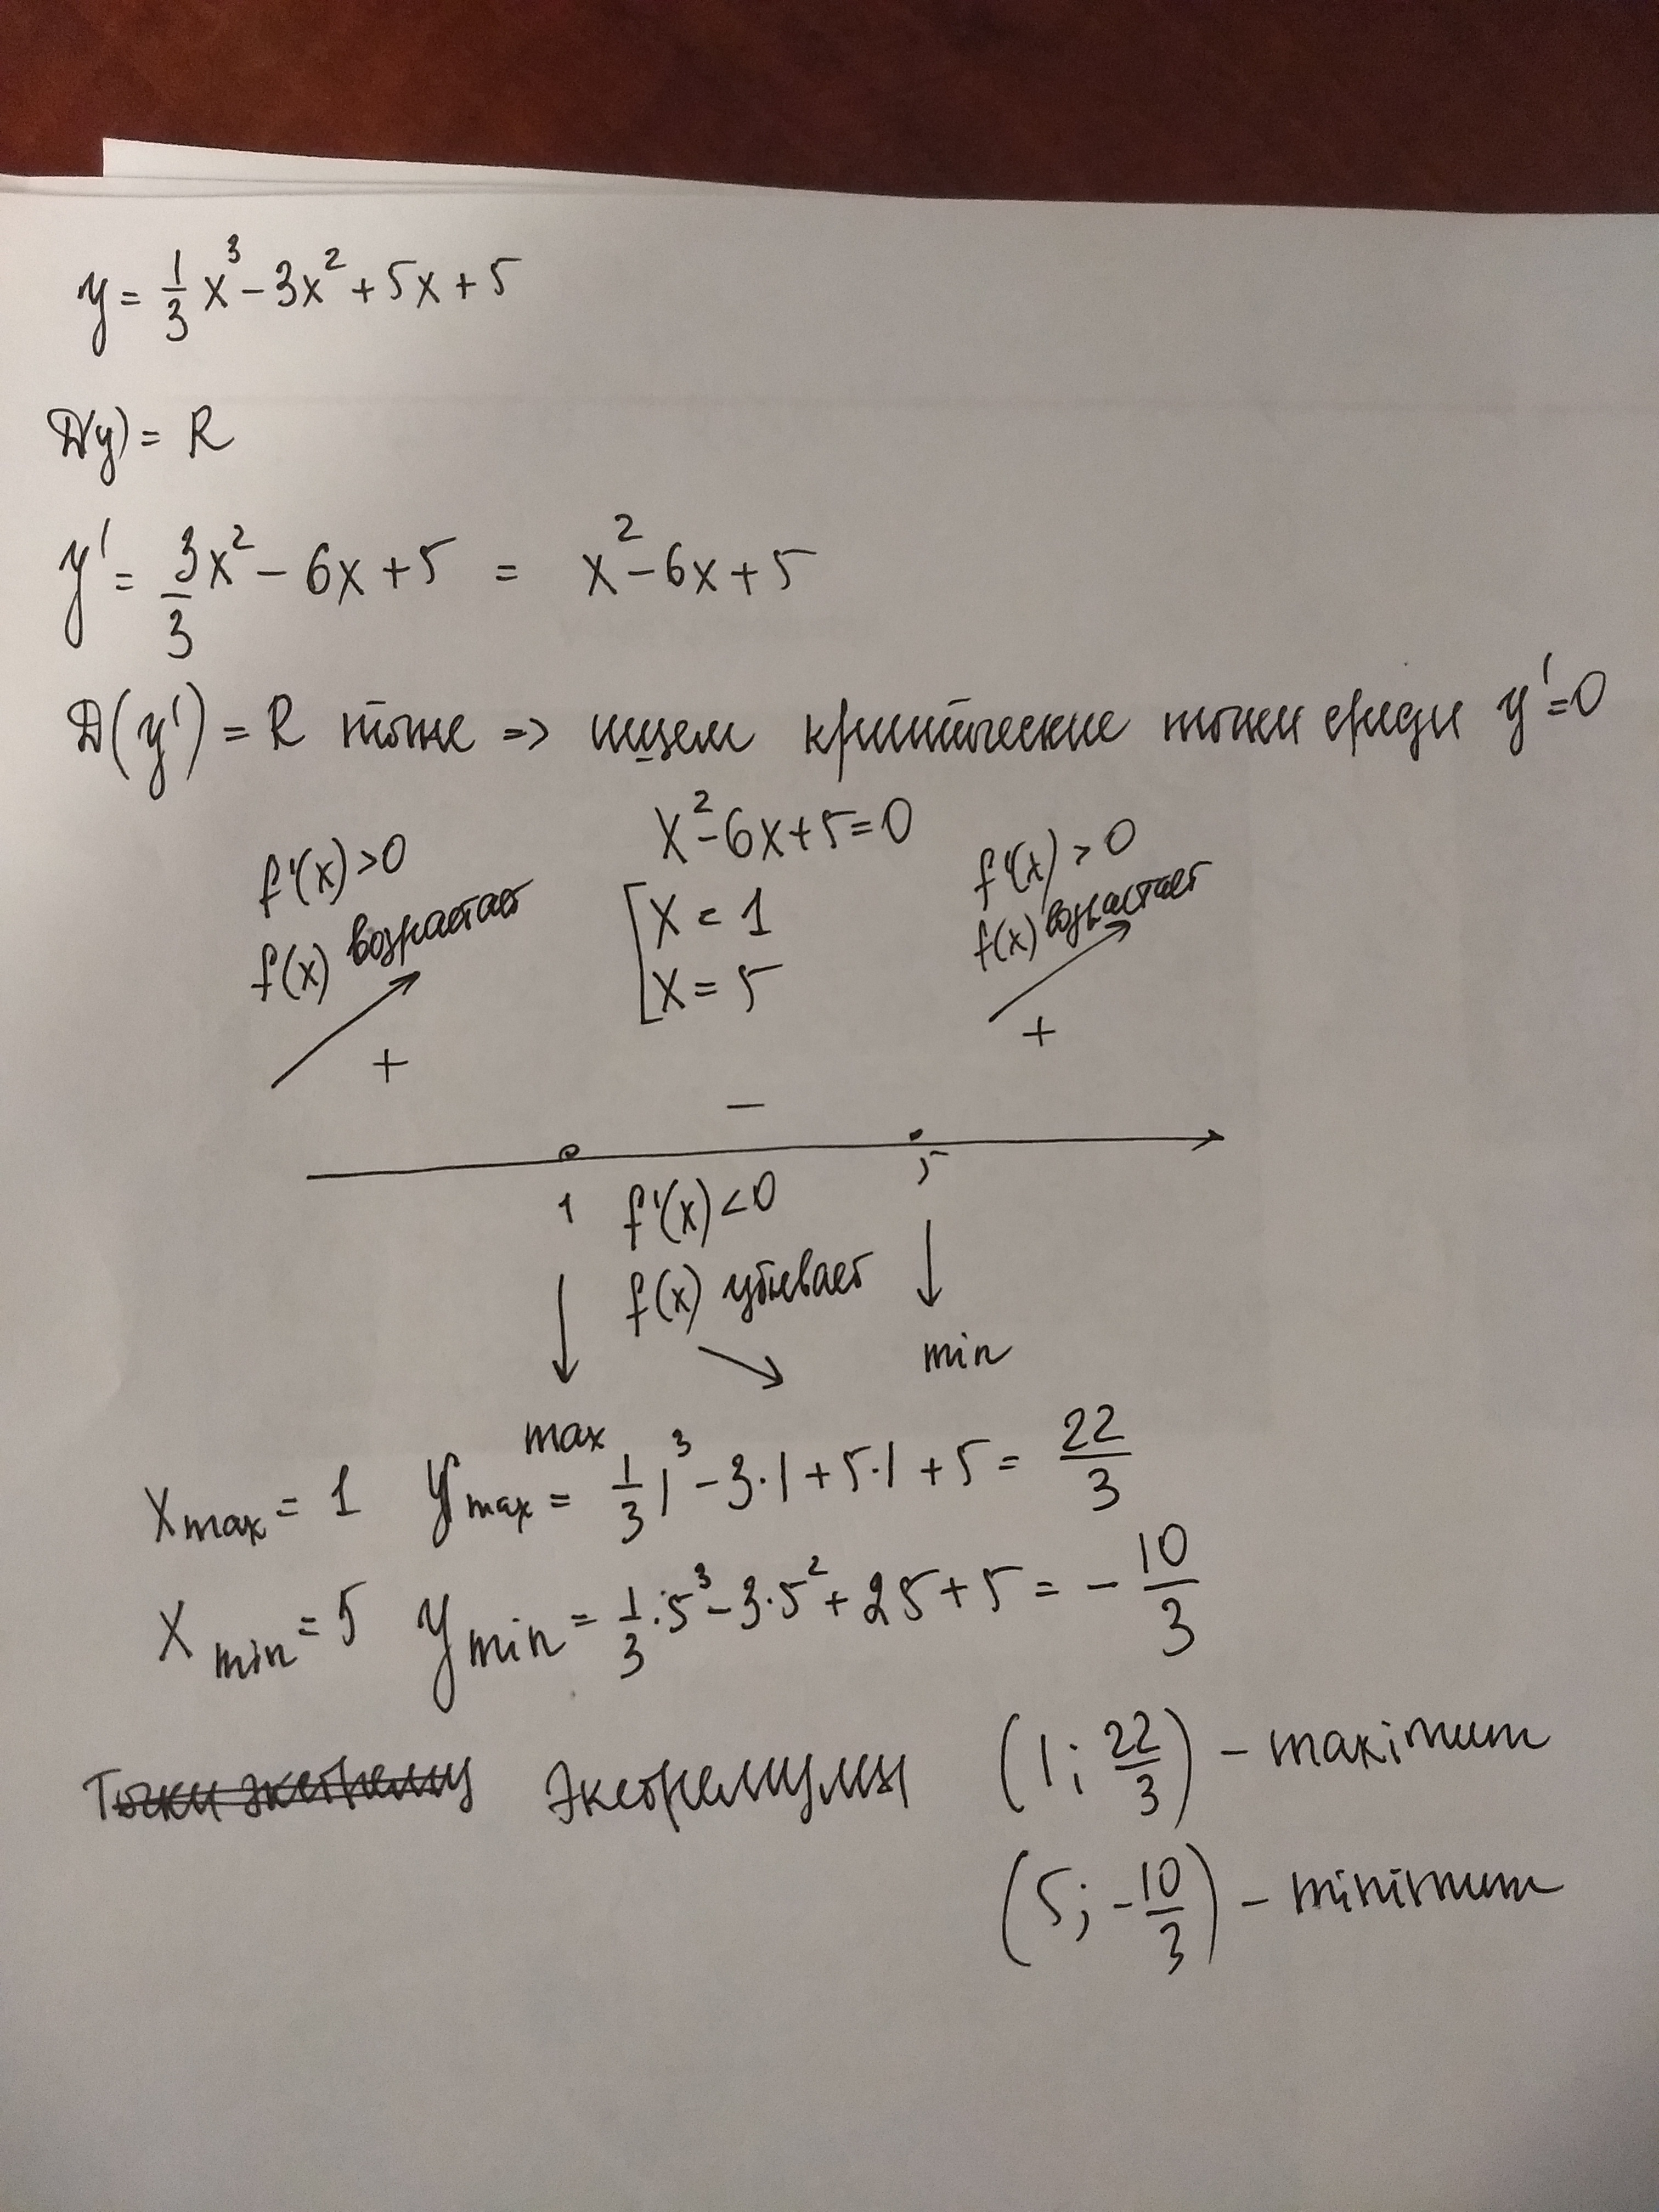 y = 1/3 x³ - 3x² + 5x + 5
D(y) = R
y' = 3/3 x² - 6x + 5 = x² - 6x + 5
D(y') = R тоже => ищем критические точки среди y' = 0
x² - 6x + 5 = 0
f'(x) > 0
f(x) возрастает
[ x = 1
x = 5
f'(x) > 0
f(x) возрастает
+ − +
1 5
f'(x) < 0
f(x) убывает
max
min
x max = 1 y max = 1/3 1³ - 3·1 + 5·1 + 5 = 22/3
x min = 5 y min = 1/3 · 5³ - 3·5² + 25 + 5 = - 10/3
Точки экстрему Экстремумы (1; 22/3) - maximum
(5; -10/3) - minimum